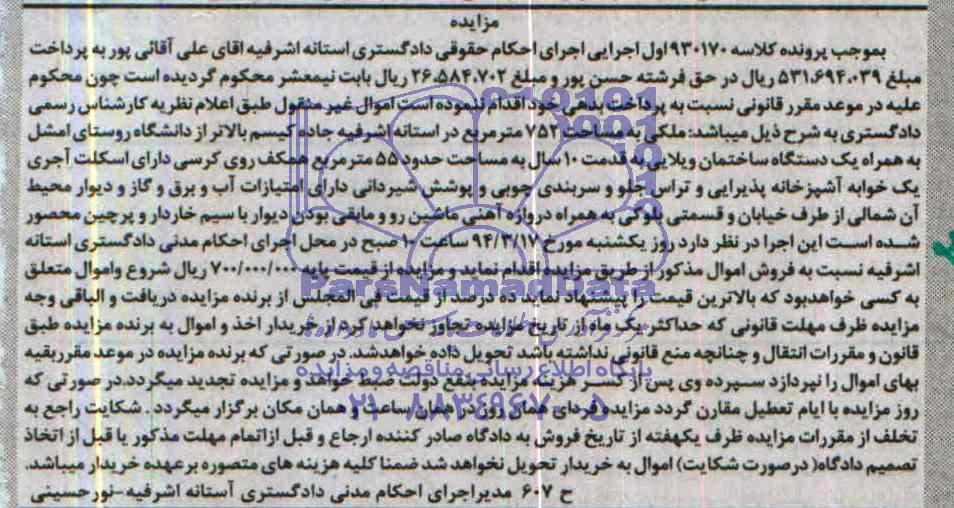 مزایده
بموجب پرونده کلاسه ۹۳۰۱۷۰ اول اجرایی اجرای احکام حقوقی دادگستری استانه اشرفیه اقای علی آقائی پور به پرداخت
مبلغ ۵۳۱،۶۹۴،۰۳۹ ریال در حق فرشته حسن پور و مبلغ ۲۶،۵۸۴،۷۰۲ ریال بابت نیمعشر محکوم گردیده است چون محکوم
علیه در موعد مقرر قانونی نسبت به پرداخت بدهی خود اقدام ننموده است اموال غیر منقول طبق اعلام نظریه کارشناس رسمی
دادگستری به شرح ذیل میباشد: ملکی به مساحت ۷۵۲ مترمربع در استانه اشرفیه جاده کیسم بالاتر از دانشگاه روستای امشل
به همراه یک دستگاه ساختمان ویلایی به قدمت ۱۰ سال به مساحت حدود ۵۵ مترمربع همکف روی کرسی دارای اسکلت آجری
یک خوابه آشپزخانه پذیرایی و تراس جلو و سربندی چوبی و پوشش شیردانی دارای امتیازات آب و برق و گاز و دیوار محیط
آن شمالی از طرف خیابان و قسمتی بلوکی به همراه دروازه آهنی ماشین رو و مابقی بودن دیوار با سیم خاردار و پرچین محصور
شده است این اجرا در نظر دارد روز یکشنبه مورخ ۹۴/۳/۱۷ ساعت ۱۰ صبح در محل اجرای احکام مدنی دادگستری استانه
اشرفیه نسبت به فروش اموال مذکور از طریق مزایده اقدام نماید و مزایده از قیمت پایه ۷۰۰/۰۰۰/۰۰۰ ریال شروع واموال متعلق
به کسی خواهدبود که بالاترین قیمت را پیشنهاد نماید ده درصد از قیمت فی المجلس از برنده مزایده دریافت و الباقی وجه
مزایده ظرف مهلت قانونی که حداکثر یک ماه از تاریخ مزایده تجاوز نخواهد کرد از خریدار اخذ و اموال به برنده مزایده طبق
قانون و مقررات انتقال و چنانچه منع قانونی نداشته باشد تحویل داده خواهدشد. در صورتی که برنده مزایده در موعد مقرربقیه
بهای اموال را نپردازد سپرده وی پس از کسر هزینه مزایده بنفع دولت ضبط خواهد و مزایده تجدید میگردد.در صورتی که
روز مزایده با ایام تعطیل مقارن گردد مزایده فردای همان روز در همان ساعت و همان مکان برگزار میگردد. شکایت راجع به
تخلف از مقررات مزایده ظرف یکهفته از تاریخ فروش به دادگاه صادر کننده ارجاع و قبل ازاتمام مهلت مذکور یا قبل از اتخاذ
تصمیم دادگاه( درصورت شکایت) اموال به خریدار تحویل نخواهد شد ضمنا کلیه هزینه های متصوره برعهده خریدار میباشد.
ح ۶۰۷ مدیراجرای احکام مدنی دادگستری آستانه اشرفیه-نورحسینی
ParsNamadData
پایگاه اطلاع رسانی مناقصه و مزایده
۰۲۱-۸۸۳۴۹۶۷۰-۵